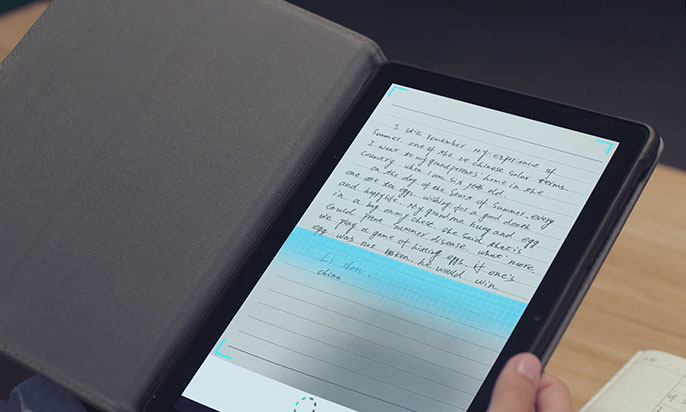 I still remember my experience of
Summer. one of the 24 chinese solar terms.
I went to my grandparents' home in the
country when I am six years old.
on the day of the Start of Summer. every
one ate tea eggs wishing for a good death
and happy life. My grandma hung and egg
in a bag on my chese she said that is
could prent summer disease. what more.
we play a game of hitting eggs. if one's
egg was not broken. he would win
Li Shen.
china